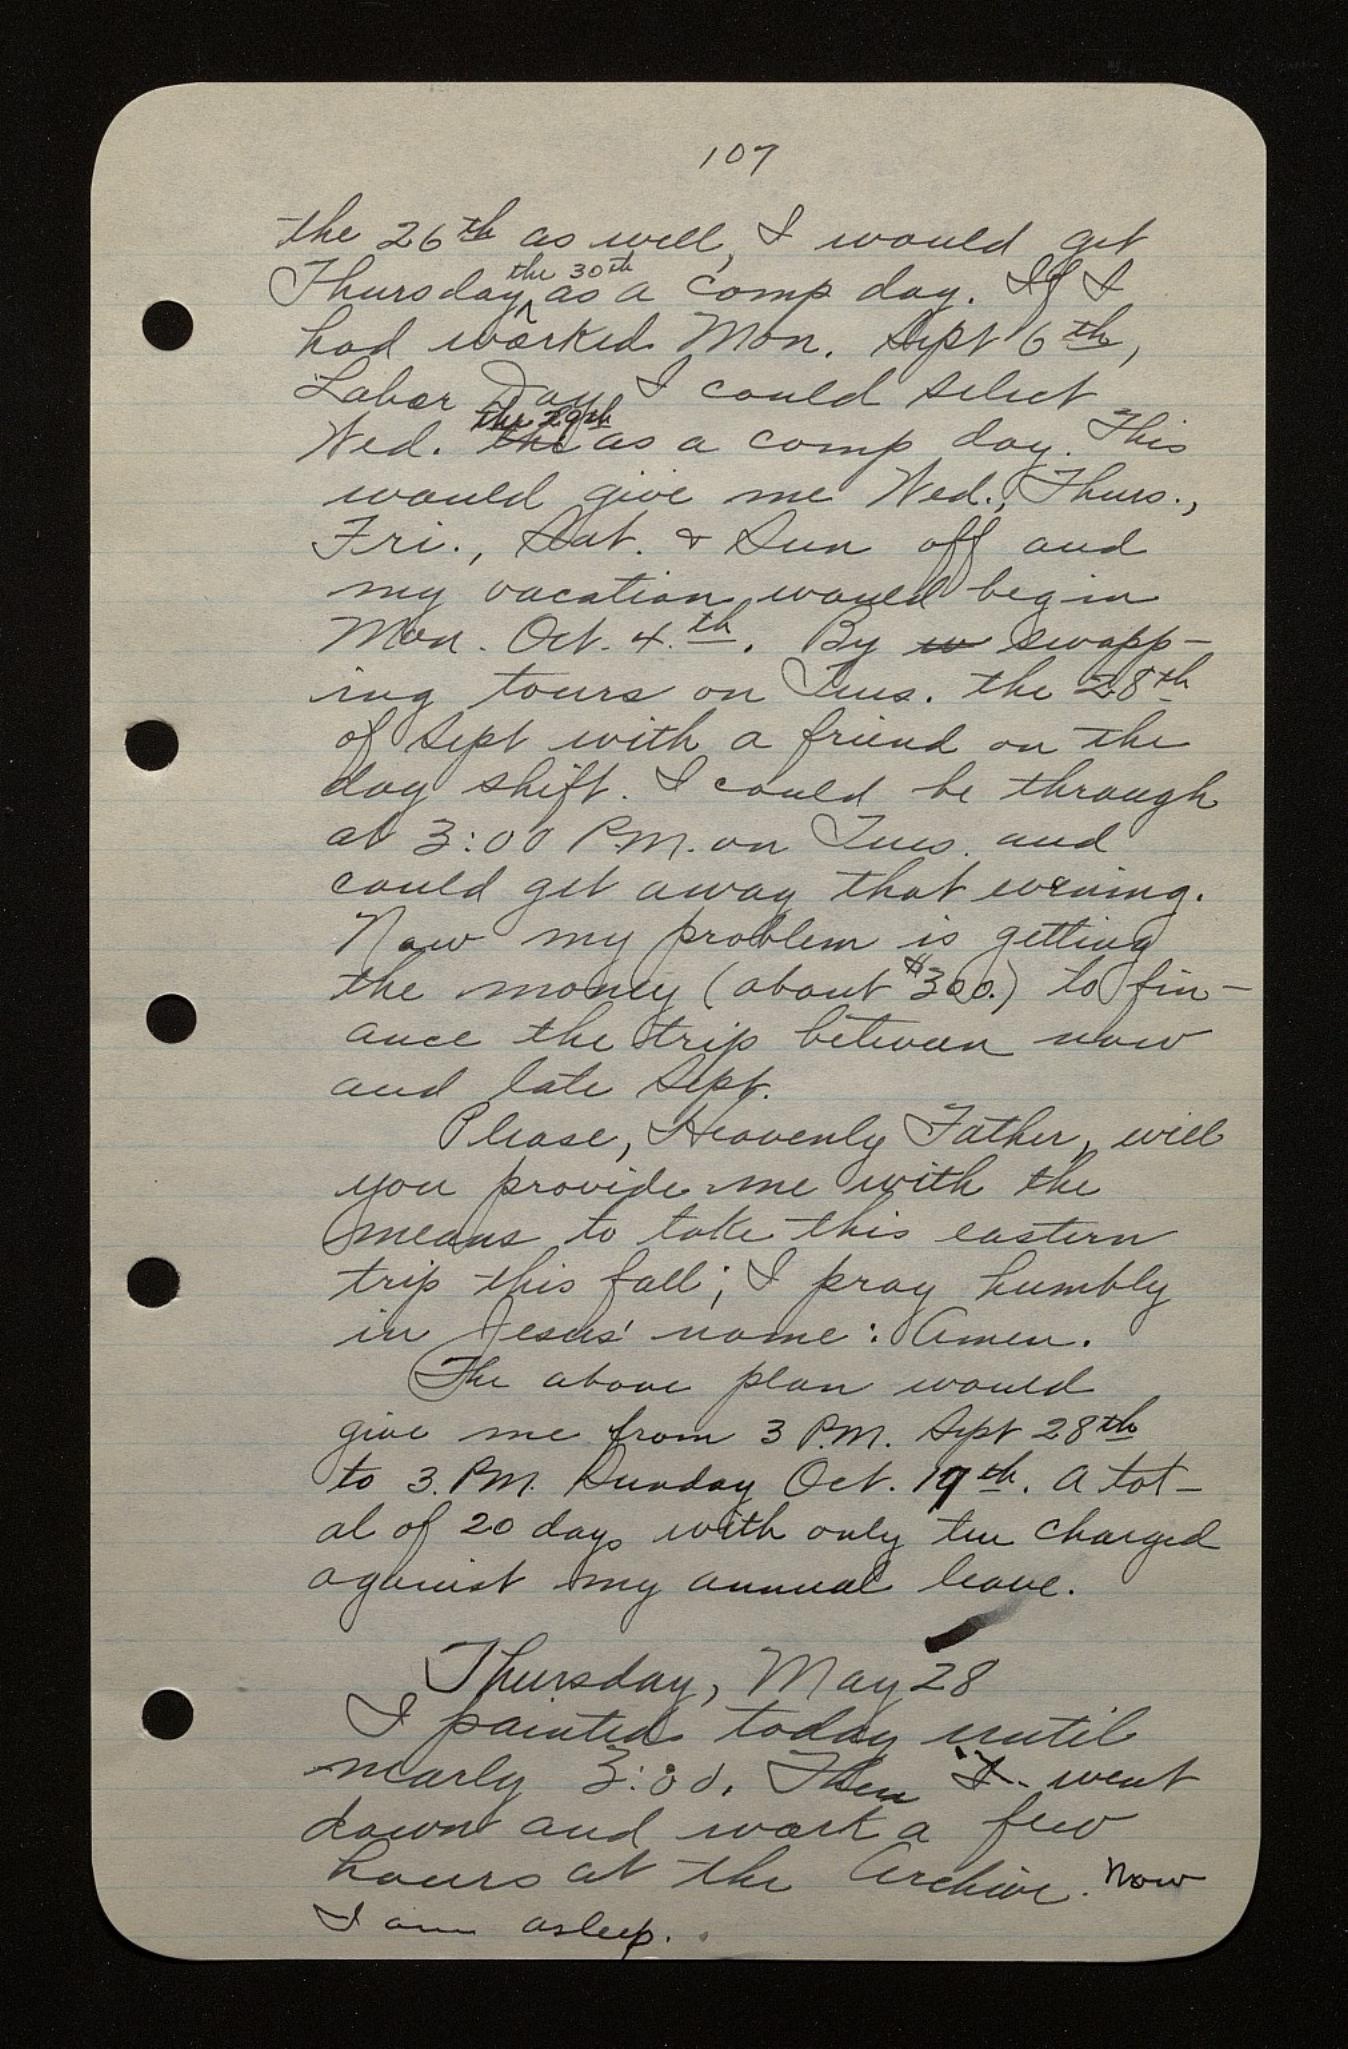 107
the 26th as well, I would get
Thursday the 30th as a comp day. If I
had worked Mon. Sept 6th,
Labor Day I could select
Wed. the the 29th as a comp day. This
would give me Wed., Thurs.,
Fri., Sat. & Sun off and
my vacation would begin
Mon. Oct. 4.th. By w swapp-
ing tours on Tues. the 28th
of Sept with a friend on the
day shift. I could be through
at 3:00 P.M. on Tues. and
could get away that evening.
Now my problem is getting
the money (about $300.) to fin-
ance the trip between now
and late Sept.
Please, Heavenly Father, will
you provide me with the
means to take this eastern
trip this fall; I pray humbly
in Jesus' name: Amen.
The above plan would
give me from 3 P.M. Sept 28th
to 3. P.M. Sunday Oct. 17th. A tot-
al of 20 days with only ten charged
against my annual leave.
Thursday, May 28
I painted today until
nearly 3:00. Then I went
down and work a few
hours at the Archive. Now
I am asleep.